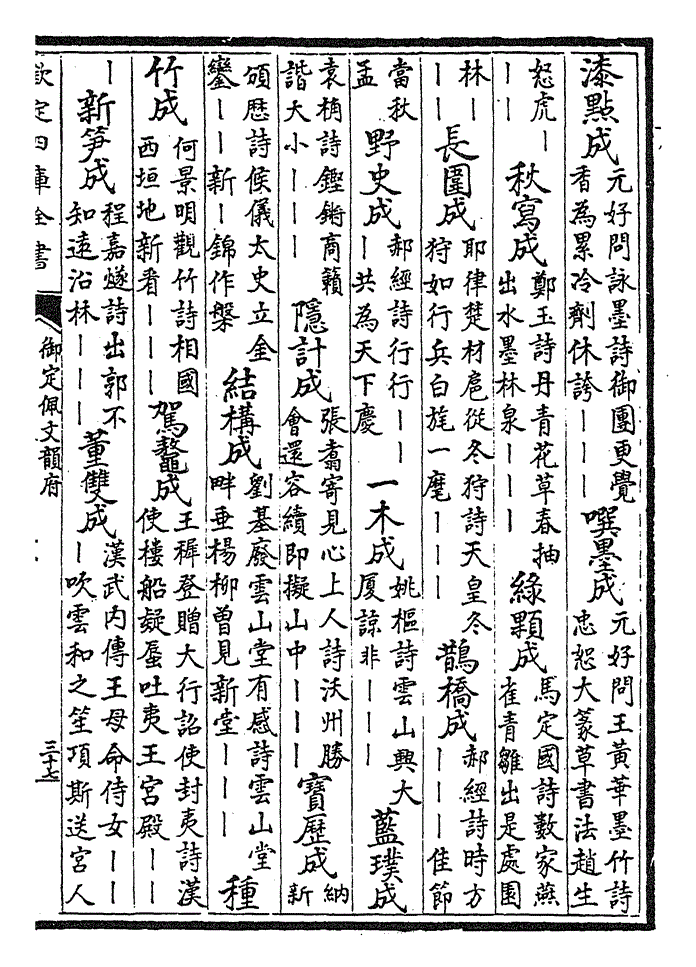 漆點成 元好問詠墨詩御團更覺香為累冷劑休誇｜｜｜ 噀墨成 元好問王黃華墨竹詩忠恕大篆草書法趙生
怒虎｜｜｜ 秋寫成 鄭玉詩丹青花草春抽出水墨林泉｜｜｜ 綠顆成 馬定國詩數家燕雀青雛出是處園
林｜｜｜ 長圍成 耶律楚材扈從冬狩詩天皇冬狩如行兵白旄一麾｜｜｜ 鵲橋成 郝經詩時方｜｜｜佳節
當秋孟 野史成 郝經詩行行｜｜｜｜共為天下慶 一木成 姚樞詩雲山興大厦諒非｜｜｜ 藍璞成
袁桷詩鏗鏘商籟諧大小｜｜｜ 隱計成 張翥寄見心上人詩沃州勝會還容續即擬山中｜｜｜ 寶歷成 納新
頒歷詩候儀太史立金鑾｜｜新｜錦作槃 結構成 劉基廢雲山堂有感詩雲山堂畔垂楊柳曽見新堂｜｜｜ 種
竹成 何景明觀竹詩相國西垣地新看｜｜｜ 駕鼇成 王穉登贈大行詔使封夷詩漢使樓船疑蜃吐夷王宮殿｜｜
｜ 新笋成 程嘉燧詩出郭不知遠沿林｜｜｜ 董雙成 漢武内傳王母命侍女｜｜｜吹雲和之笙項斯送宮人
欽定四庫全書 御定佩文韻府 三十七